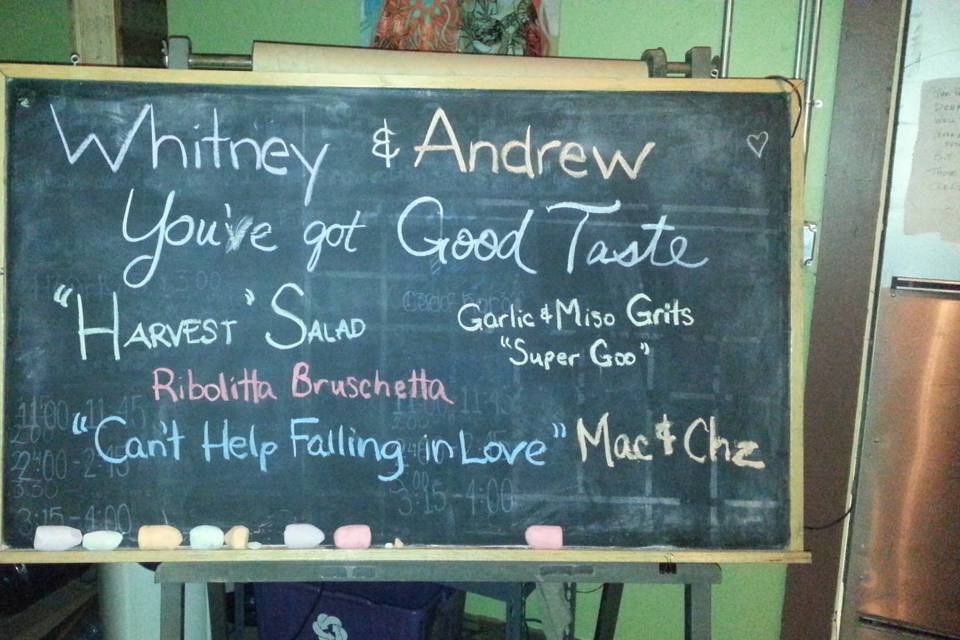 Whitney & Andrew
You've got Good Taste
"Harvest" Salad
Garlic & Miso Grits
"Super Goo"
Ribolitta Bruschetta
"Can't Help Falling in Love" Mac & Chz
11:00-11:45
2:00-2:45
3:15-4:00
3:15-4:00